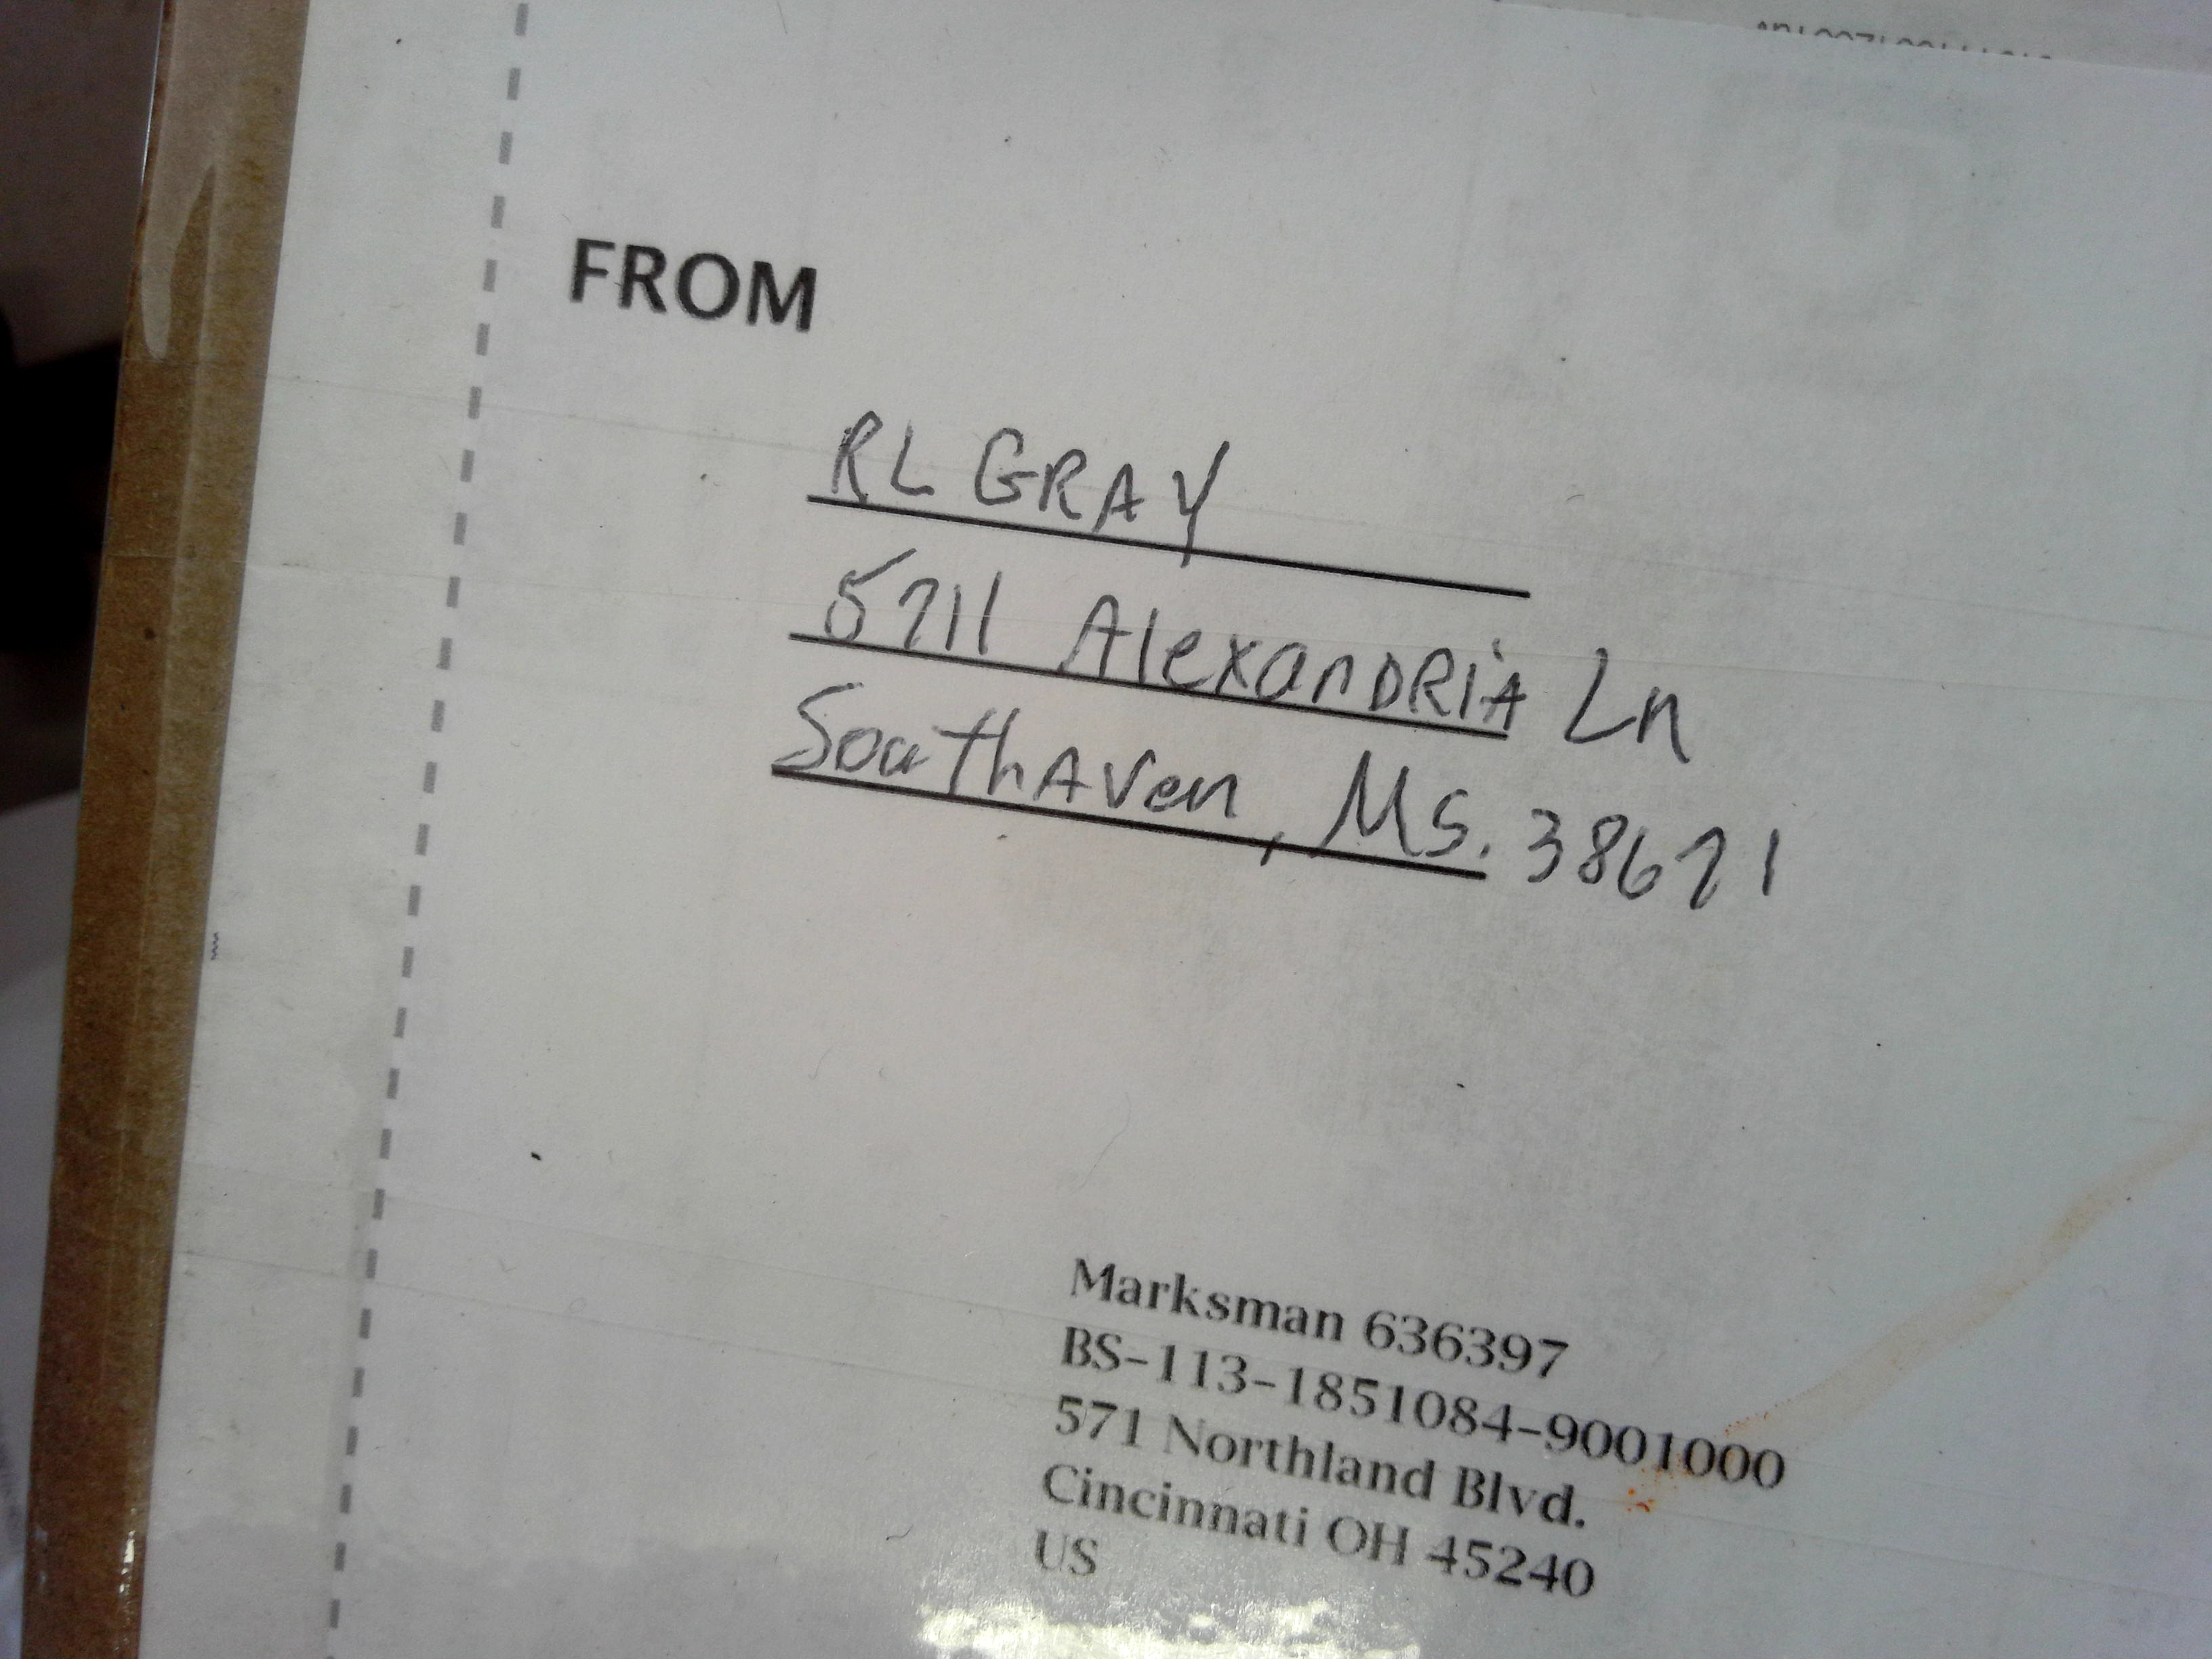 FROM
RL GRAY
5711 AlexanDRiA Ln
SouthAven, Ms. 38671
Marksman 636397
BS-113-1851084-9001000
571 Northland Blvd.
Cincinnati OH 45240
US